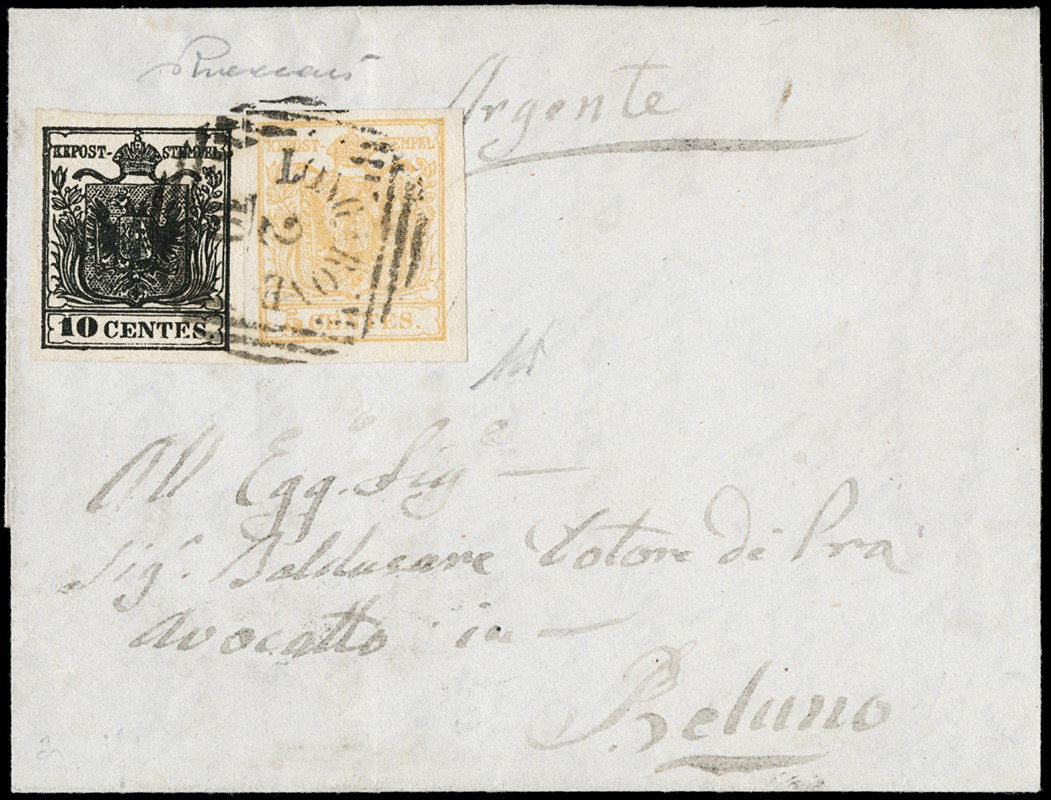 Argente
KKPOST-STEMPEL
10 CENTES.
KKPOST-STEMPEL
5 CENTES.
LONGARONE
2
All Egg.º Sig.e
Sig.r Baldassare Dotore Di Prà
Avocatto in
Beluno